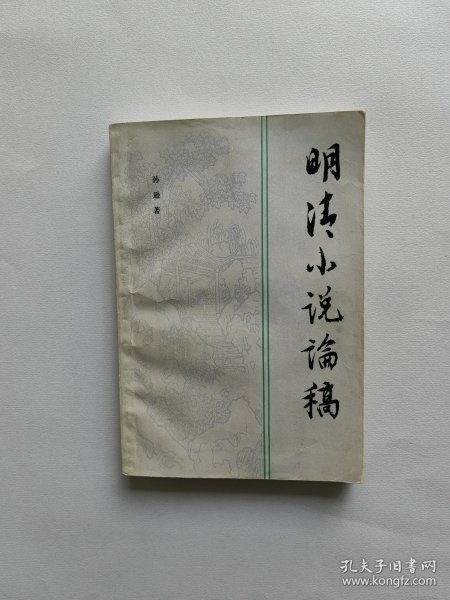 明清小说論稿
孙逊著
孔夫子旧书网
www.kongfz.com